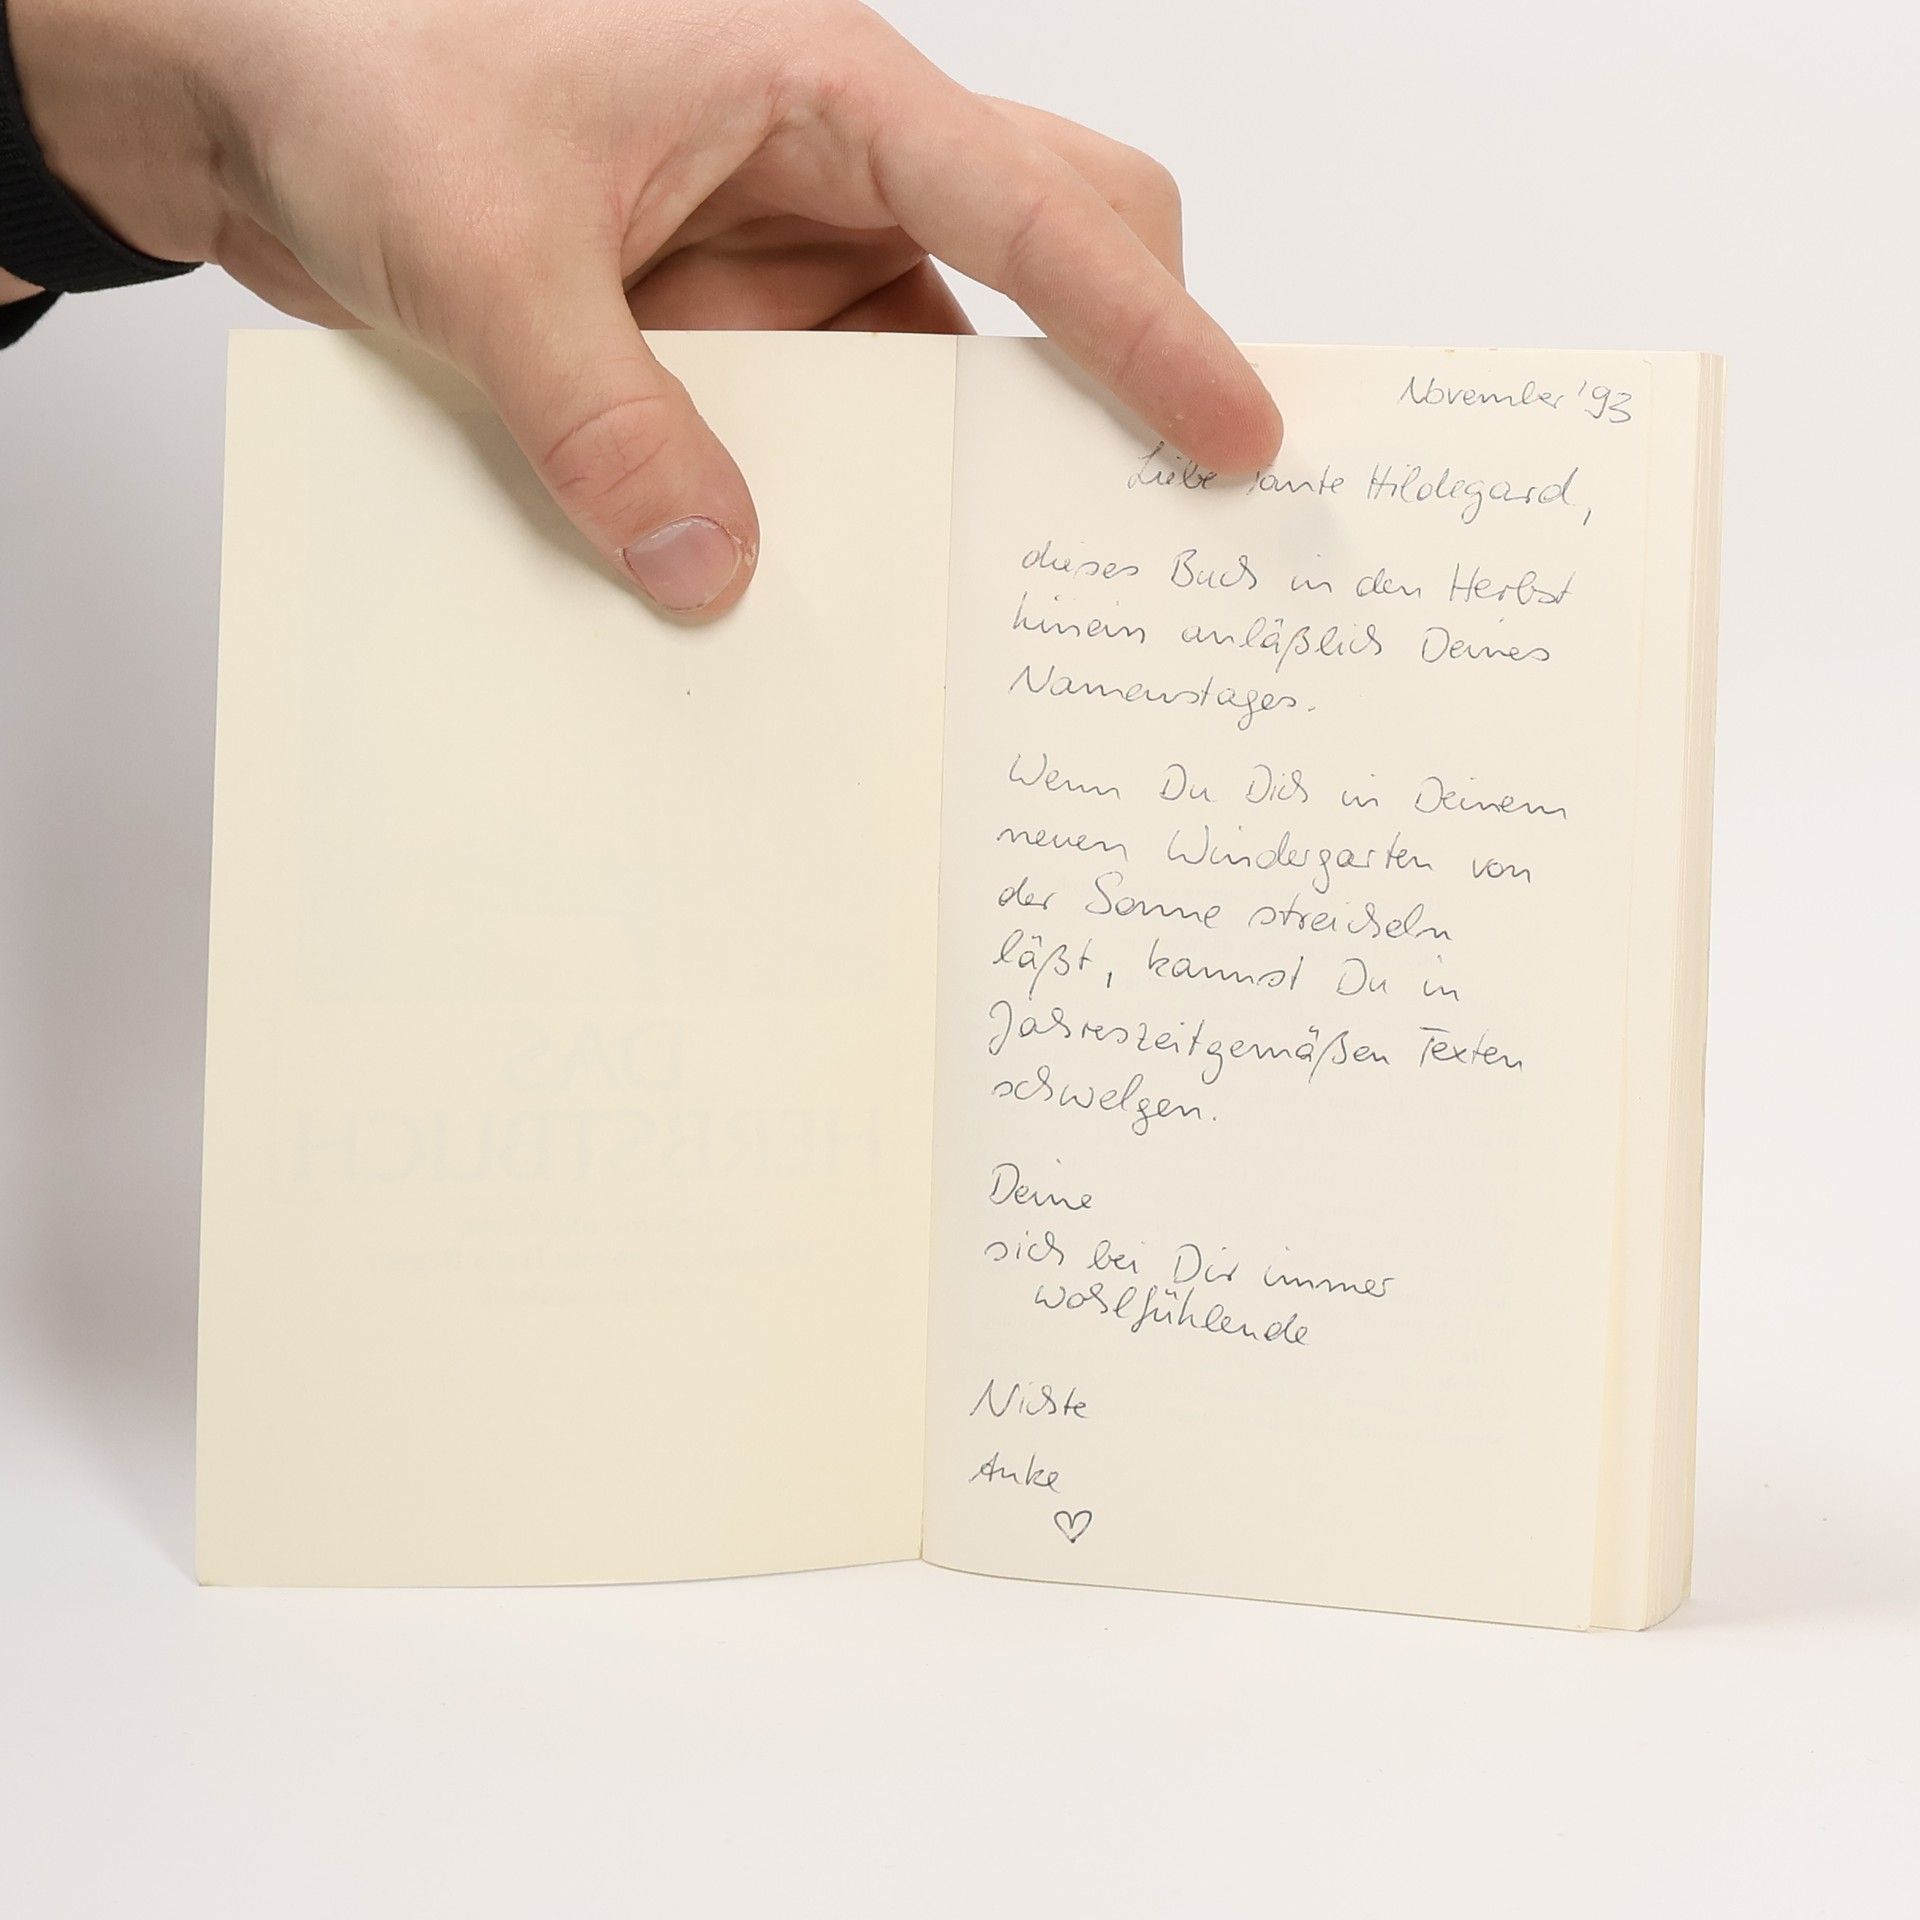 November '93
Liebe Tante Hildegard,
dieses Buch in den Herbst
hinein anläßlich Deines
Namenstages.
Wenn Du Dich in Deinem
neuen Windergarten von
der Sonne streicheln
läßt, kannst Du in
Jahreszeitgemäßen Texten
schwelgen.
Deine
sich bei Dir immer
wohlfühlende
Nichte
Anke
DAS
HERBSTBUCH